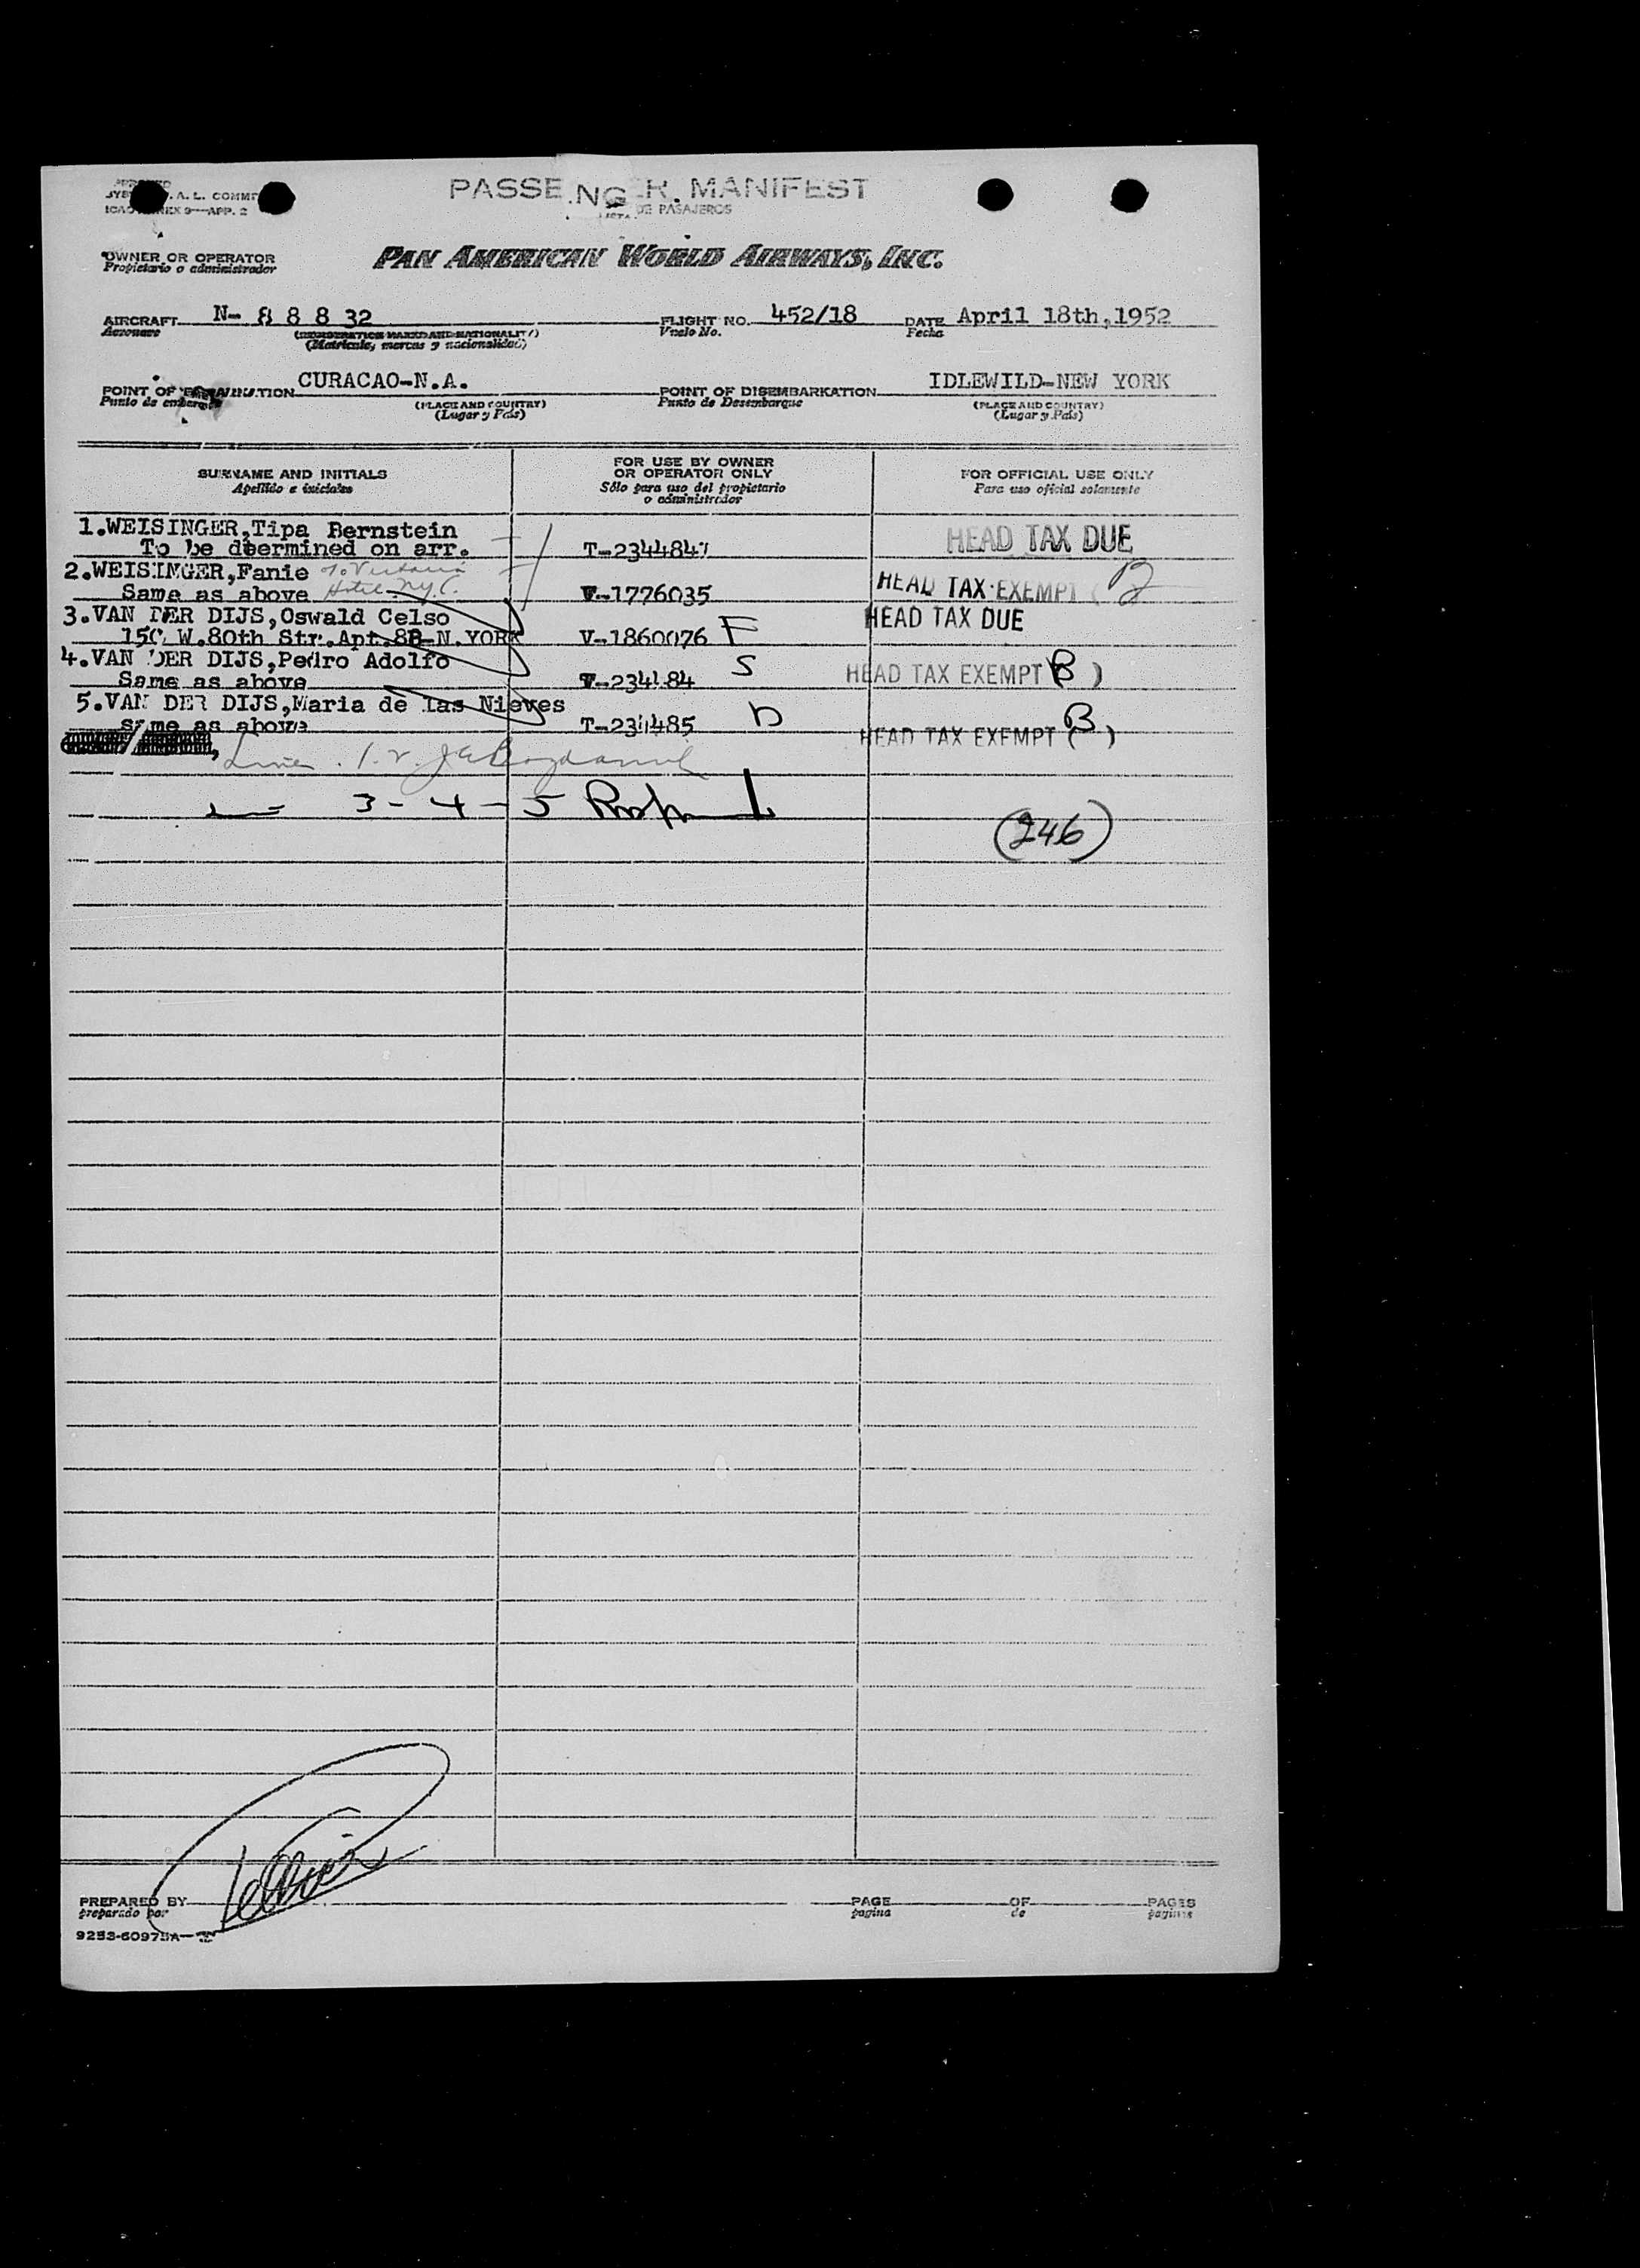 PASSENGER MANIFEST
DE PASAJEROS
A. L. COMM
9—APP. 2
OWNER OR OPERATOR
Propietario o administrador
PAN AMERICAN WORLD AIRWAYS, INC.
AIRCRAFT N- 8 8 8 32 FLIGHT NO. 452/18 DATE April 18th,1952
Aeronave Vuelo No. Fecha
(Matricula, marcas y nacionalidad)
POINT OF CURACAO-N.A. POINT OF DISEMBARKATION IDLEWILD-NEW YORK
Punto de (PLACE AND COUNTRY) Punto de Desembarque (PLACE AND COUNTRY)
(Lugar y Pais) (Lugar y Pais)
SURNAME AND INITIALS FOR USE BY OWNER OR OPERATOR ONLY FOR OFFICIAL USE ONLY
Apellido e iniciales Sólo para uso del propietario o administrador Para uso oficial solamente
1.WEISINGER,Tipa Bernstein HEAD TAX DUE
To be deermined on arr. T-2344847
2.WEISINGER,Fanie HEAD TAX EXEMPT (
Same as above Hotel N.Y.C. V-1776035
3.VAN DER DIJS,Oswald Celso HEAD TAX DUE
W.80th Str.Apt.8B-N.YORK V-1860076 F
4.VAN DER DIJS,Pedro Adolfo S HEAD TAX EXEMPT (B)
Same as above
5.VAN DER DIJS,Maria de las Nieves
same as above HEAD TAX EXEMPT (B)
3 - 4 - 5
(246)
PREPARED BY PAGE OF PAGES
preparado por pagina de paginas